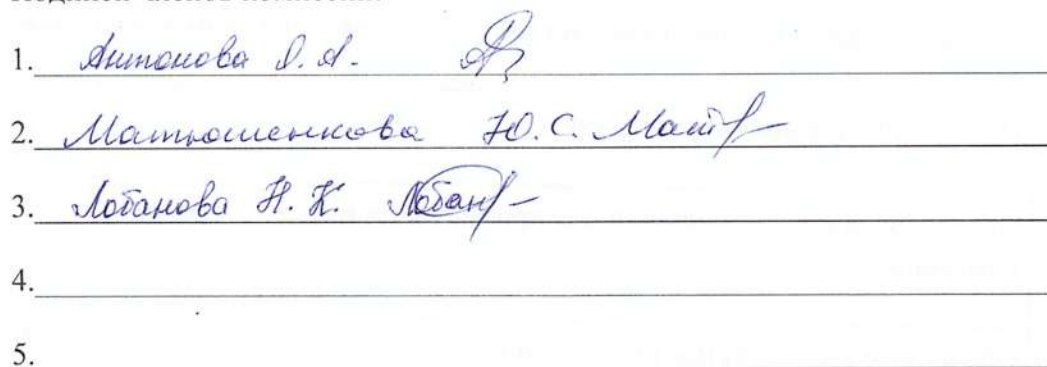 1. Антонова О. А.
2. Матюшенкова Ю. С. Мат
3. Лобанова Н. К. Лобан
4.
5.